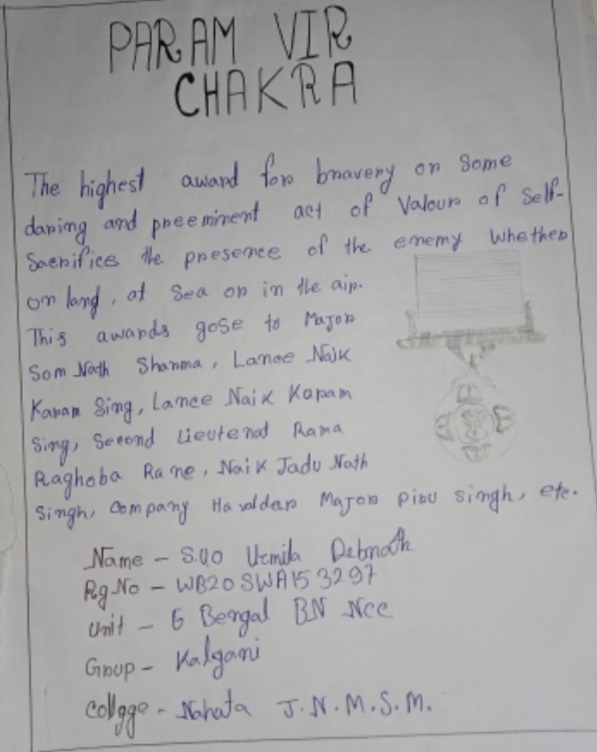 PARAM VIR
CHAKRA
The highest award for bravery or Some
daring and preeminent act of Valour of Self-
Sacrifice the presence of the enemy Whether
on land, at Sea or in the air.
This awards gose to Major
Som Nath Sharma, Lance Naik
Karam Sing, Lance Naik Koram
Sing, Second Lieutenat Rama
Raghoba Rane, Naik Jadu Nath
Singh, Company Havaldar Major Piru Singh, etc.
Name - S.U.O Urmila Debnath
Rg.No - WB20SWA153297
Unit - 6 Bengal BN Ncc
Group - Kalyani
Collgge - Nahata J.N.M.S.M.